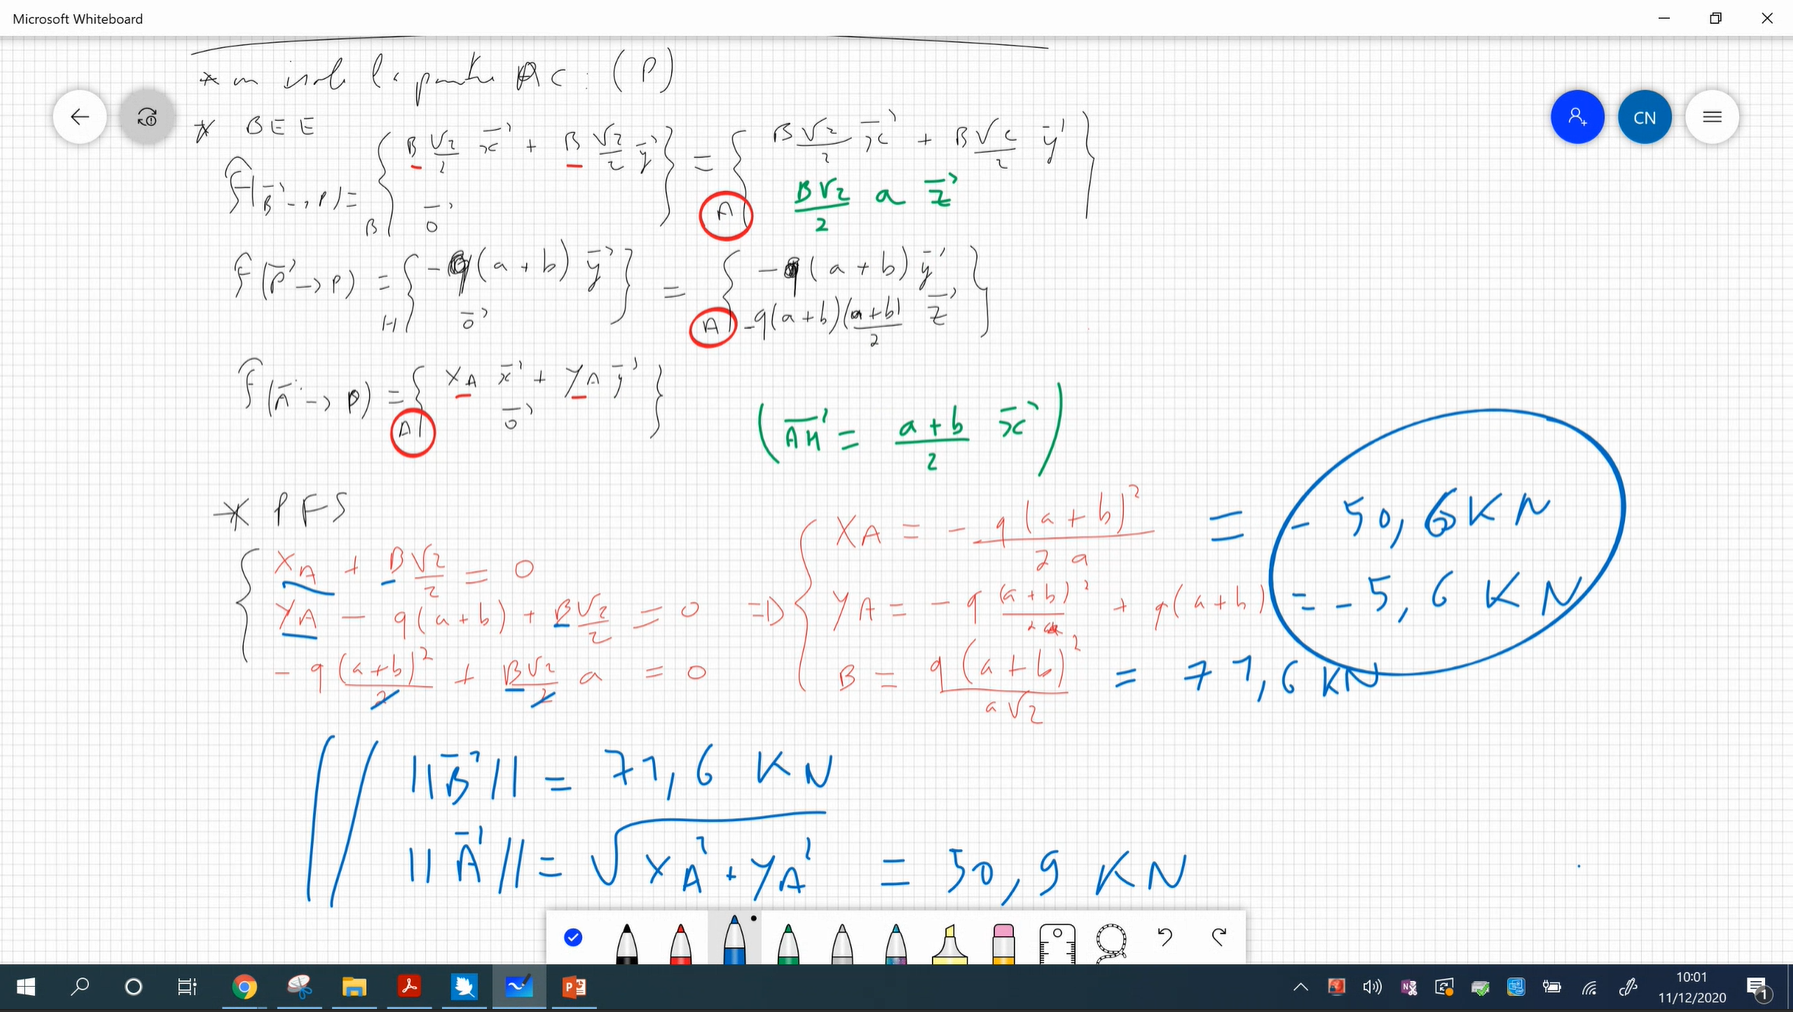 Microsoft Whiteboard
* on isole la partie AC : (P)
* BEE
F(B→P) = { B √2/2 x + B √2/2 y ; 0 }B = { B√2/2 x + B√2/2 y ; B√2/2 a z }A
F(P→P) = { -q(a+b) y ; 0 }H = { -q(a+b) y ; -q(a+b)(a+b)/2 z }A
F(A→P) = { XA x + YA y ; 0 }A
(AH = a+b/2 x)
* PFS
XA + B√2/2 = 0
YA - q(a+b) + B√2/2 = 0
- q (a+b)²/2 + B√2/2 a = 0
=D
XA = - q(a+b)²/2a = - 50,6 KN
YA = - q (a+b)²/2a + q(a+b) = - 5,6 KN
B = q(a+b)²/a√2 = 71,6 KN
||B|| = 71,6 KN
||A|| = √XA² + YA² = 50,9 KN
CN
10:01
11/12/2020
1